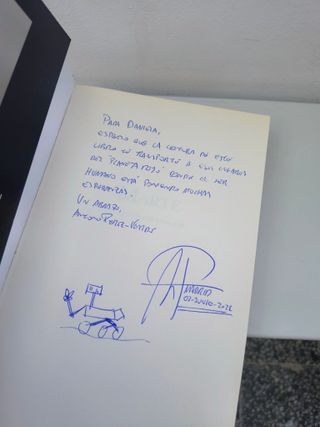 PARA DANIELA,
ESPERO QUE LA LECTURA DE ESTE
LIBRO TE TRANSPORTE A LOS LUGARES
DEL PLANETA ROJO DONDE EL SER
HUMANO ESTÁ PONIENDO MUCHAS
ESPERANZAS.
UN ABRAZO,
ANTONIO PÉREZ-VERDE
MADRID
07-JUNIO-2022